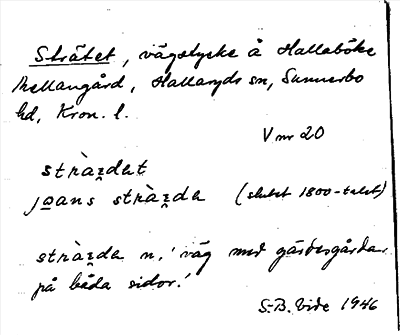 Strätet, vägstycke å Hallaböke
Mellangård, Hallaryds sn, Sunnerbo
hd, Kron. l.
V nr 20
stràꭎdat
jo̲ans stràꭎda (slutet 1800-talet)
stràꭎda n. 'väg med gärdesgårdar
på båda sidor.'
S-B. Vide 1946